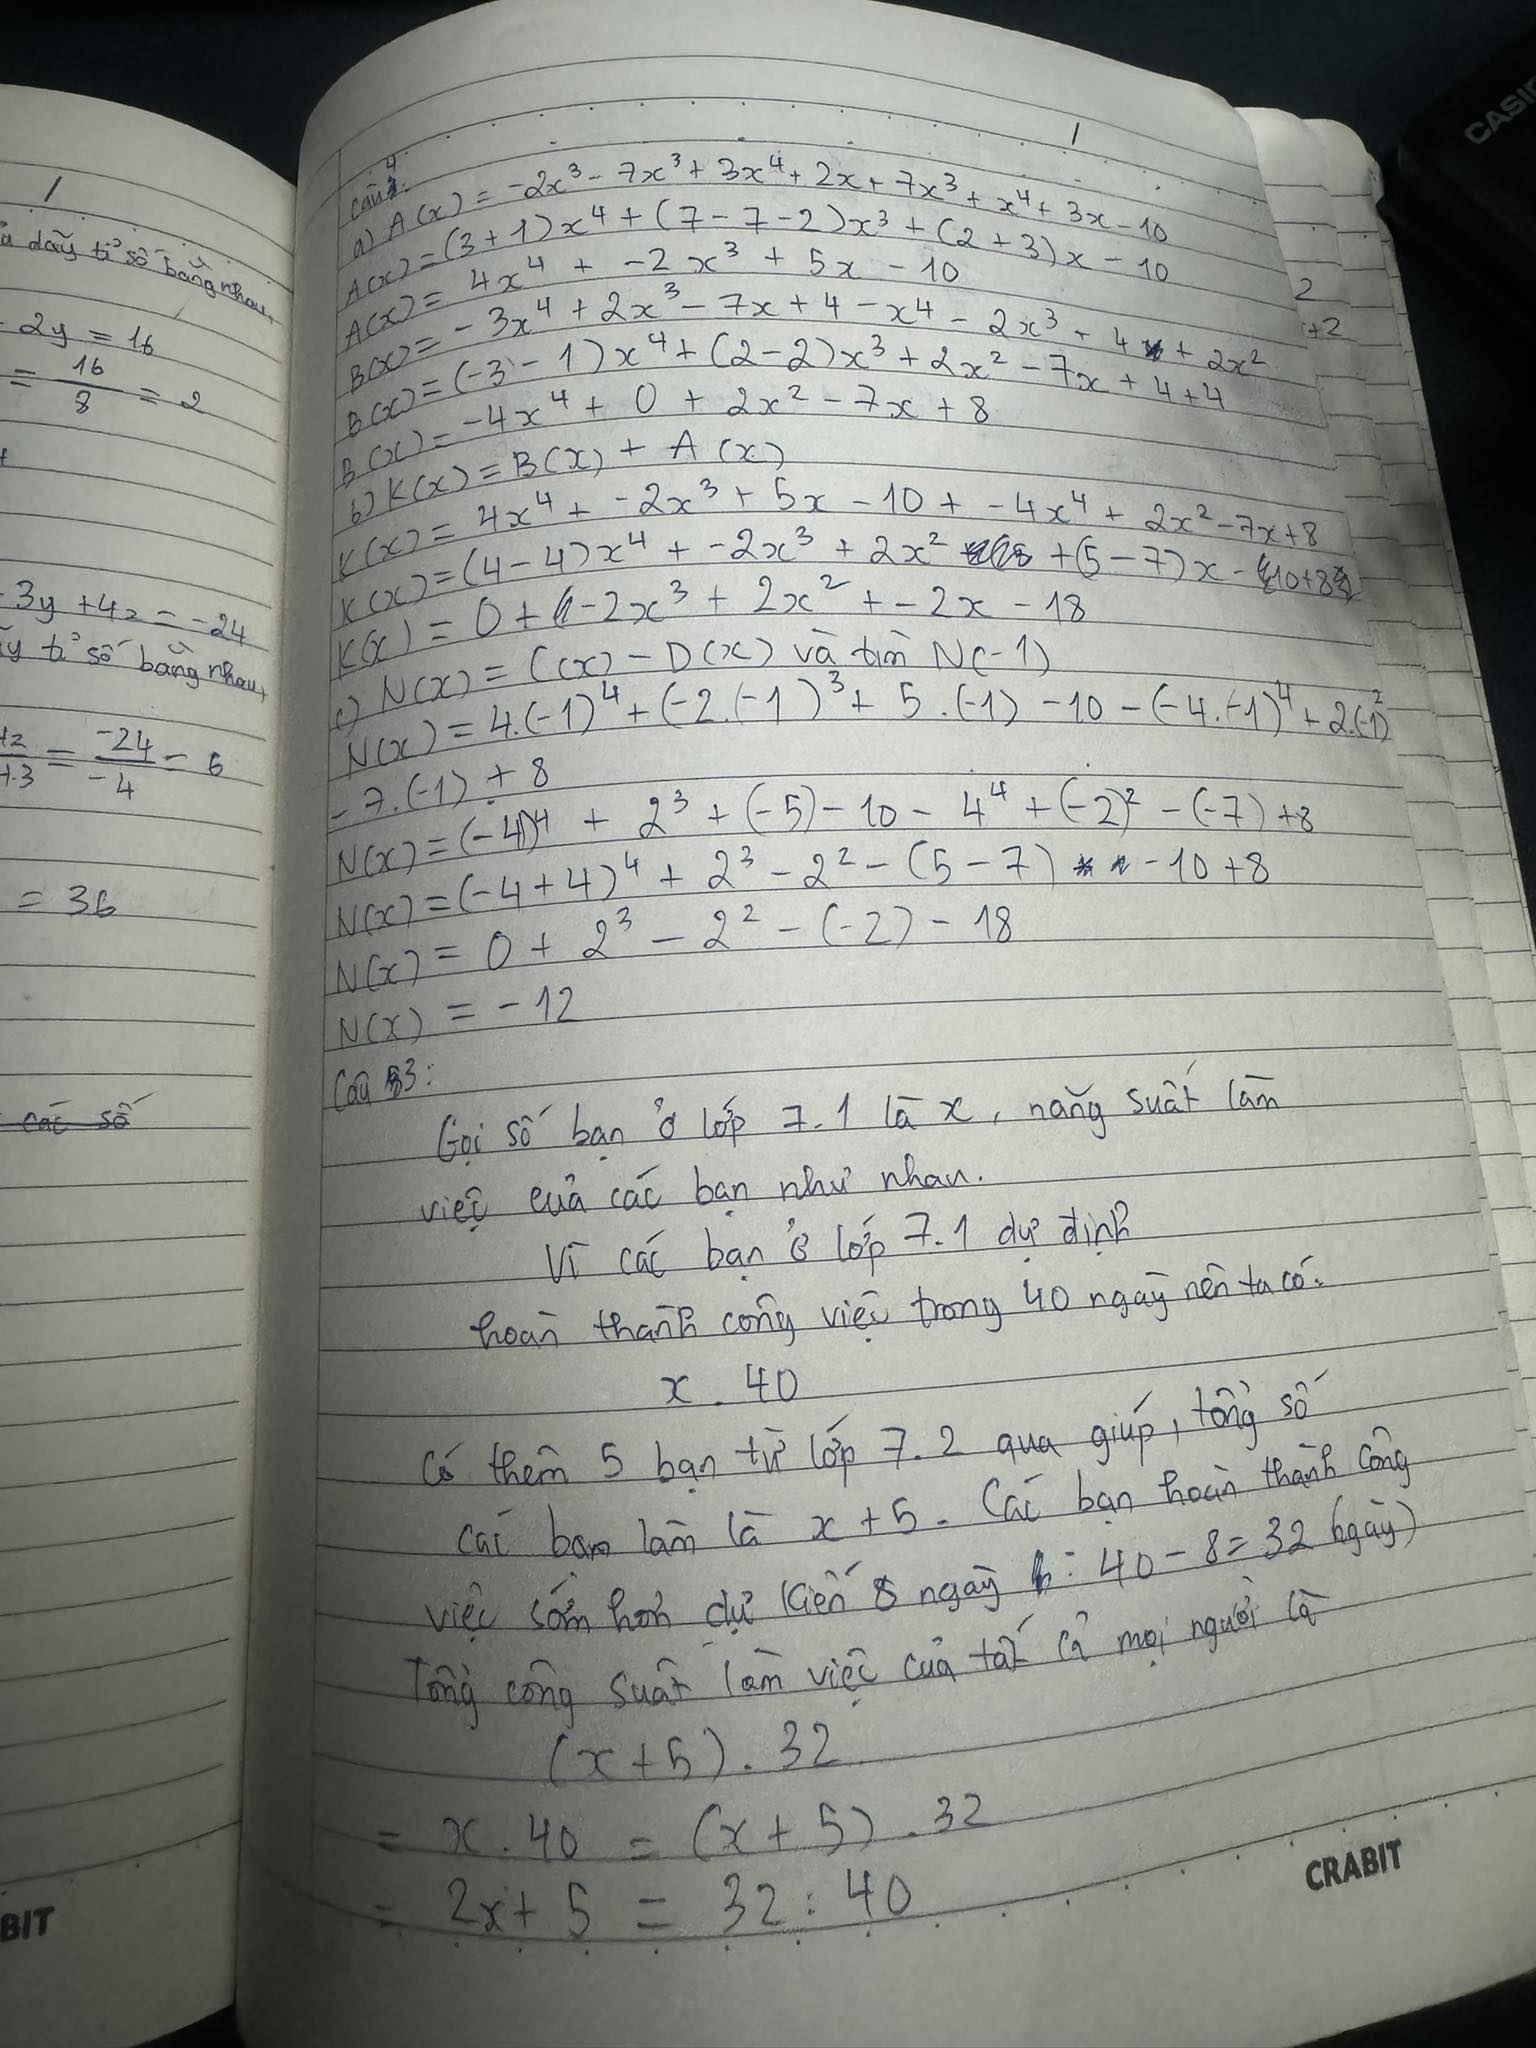 dãy tỉ số bằng nhau,
- 2y = 16
= 16/8 = 2
- 3y + 4z = -24
tỉ số bằng nhau,
= -24/-4 = 6
= 36
các số
BIT
CASIO
2
+2
Câu 4:
a) A(x) = -2x³ - 7x³ + 3x⁴ + 2x + 7x³ + x⁴ + 3x - 10
A(x) = (3+1)x⁴ + (7-7-2)x³ + (2+3)x - 10
A(x) = 4x⁴ + -2x³ + 5x - 10
B(x) = -3x⁴ + 2x³ - 7x + 4 - x⁴ - 2x³ + 4 + 2x²
B(x) = (-3-1)x⁴ + (2-2)x³ + 2x² - 7x + 4 + 4
B(x) = -4x⁴ + 0 + 2x² - 7x + 8
b) K(x) = B(x) + A(x)
K(x) = 4x⁴ + -2x³ + 5x - 10 + -4x⁴ + 2x² - 7x + 8
K(x) = (4-4)x⁴ + -2x³ + 2x² + (5-7)x - (10+8)
K(x) = 0 + -2x³ + 2x² + -2x - 18
c) N(x) = C(x) - D(x) và tìm N(-1)
N(x) = 4.(-1)⁴ + (-2.(-1)³ + 5.(-1) - 10 - (-4.-1)⁴ + 2.(-1)²
- 7.(-1) + 8
N(x) = (-4)⁴ + 2³ + (-5) - 10 - 4⁴ + (-2)² - (-7) + 8
N(x) = (-4+4)⁴ + 2³ - 2² - (5-7) - 10 + 8
N(x) = 0 + 2³ - 2² - (-2) - 18
N(x) = -12
Câu 3:
Gọi số bạn ở lớp 7.1 là x, năng suất làm
việc của các bạn như nhau.
Vì các bạn ở lớp 7.1 dự định
hoàn thành công việc trong 40 ngày nên ta có:
x . 40
Có thêm 5 bạn từ lớp 7.2 qua giúp, tổng số
các bạn làm là x + 5. Các bạn hoàn thành công
việc sớm hơn dự kiến 8 ngày : 40 - 8 = 32 (ngày)
Tổng công suất làm việc của tất cả mọi người là
(x + 5) . 32
= x . 40 = (x + 5) . 32
= 2x + 5 = 32 : 40
CRABIT